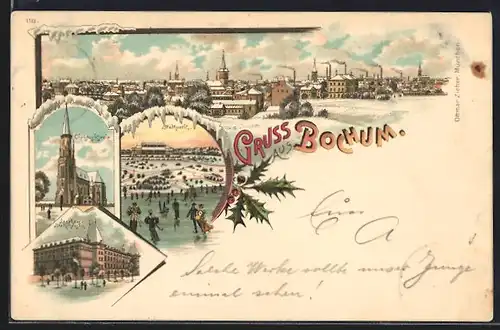 GRUSS AUS BOCHUM.
Stadtpark.
Ottmar Zieher, München.
Solche Werke sollte unser Junge
einmal sehen!